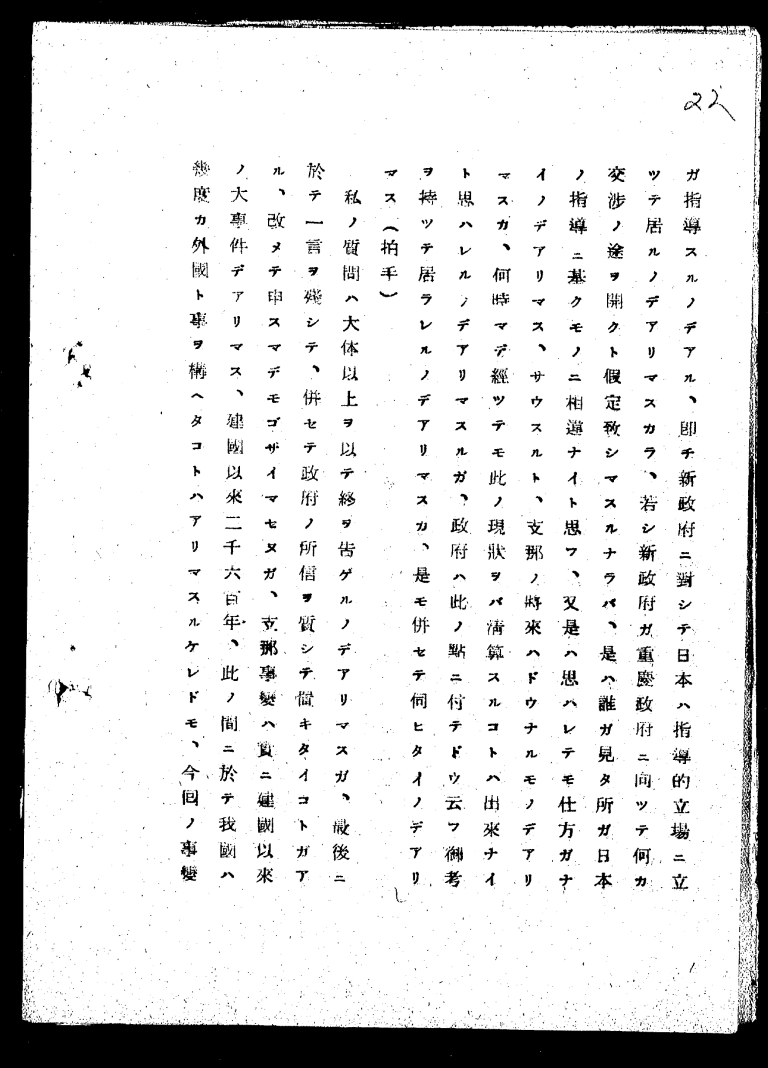 22
ガ指導スルノデアル、卽チ新政府ニ對シテ日本ハ指導的立場ニ立
ツテ居ルノデアリマスカラ、若シ新政府ガ重慶政府ニ向ツテ何カ
交渉ノ途ヲ開クト假定致シマスルナラバ、是ハ誰ガ見タ所ガ日本
ノ指導ニ基クモノニ相違ナイト思フ、又是ハ思ハレテモ仕方ガナ
イノデアリマス、サウスルト、支那ノ將來ハドウナルモノデアリ
マスカ、何時マデ經ツテモ此ノ現狀ヲバ淸算スルコトハ出來ナイ
ト思ハレルノデアリマスルガ、政府ハ此ノ點ニ付テドウ云フ御考
ヲ持ツテ居ラレルノデアリマスカ、是モ併セテ伺ヒタイノデアリ
マス(拍手)
私ノ質問ハ大体以上ヲ以テ終ヲ告ゲルノデアリマスガ、最後ニ
於テ一言ヲ殘シテ、併セテ政府ノ所信ヲ質シテ置キタイコトガア
ル、改メテ申スマデモゴザイマセヌガ、支那事變ハ實ニ建國以來
ノ大事件デアリマス、建國以來二千六百年、此ノ間ニ於テ我國ハ
幾度カ外國ト事ヲ構ヘタコトハアリマスルケレドモ、今囘ノ事變